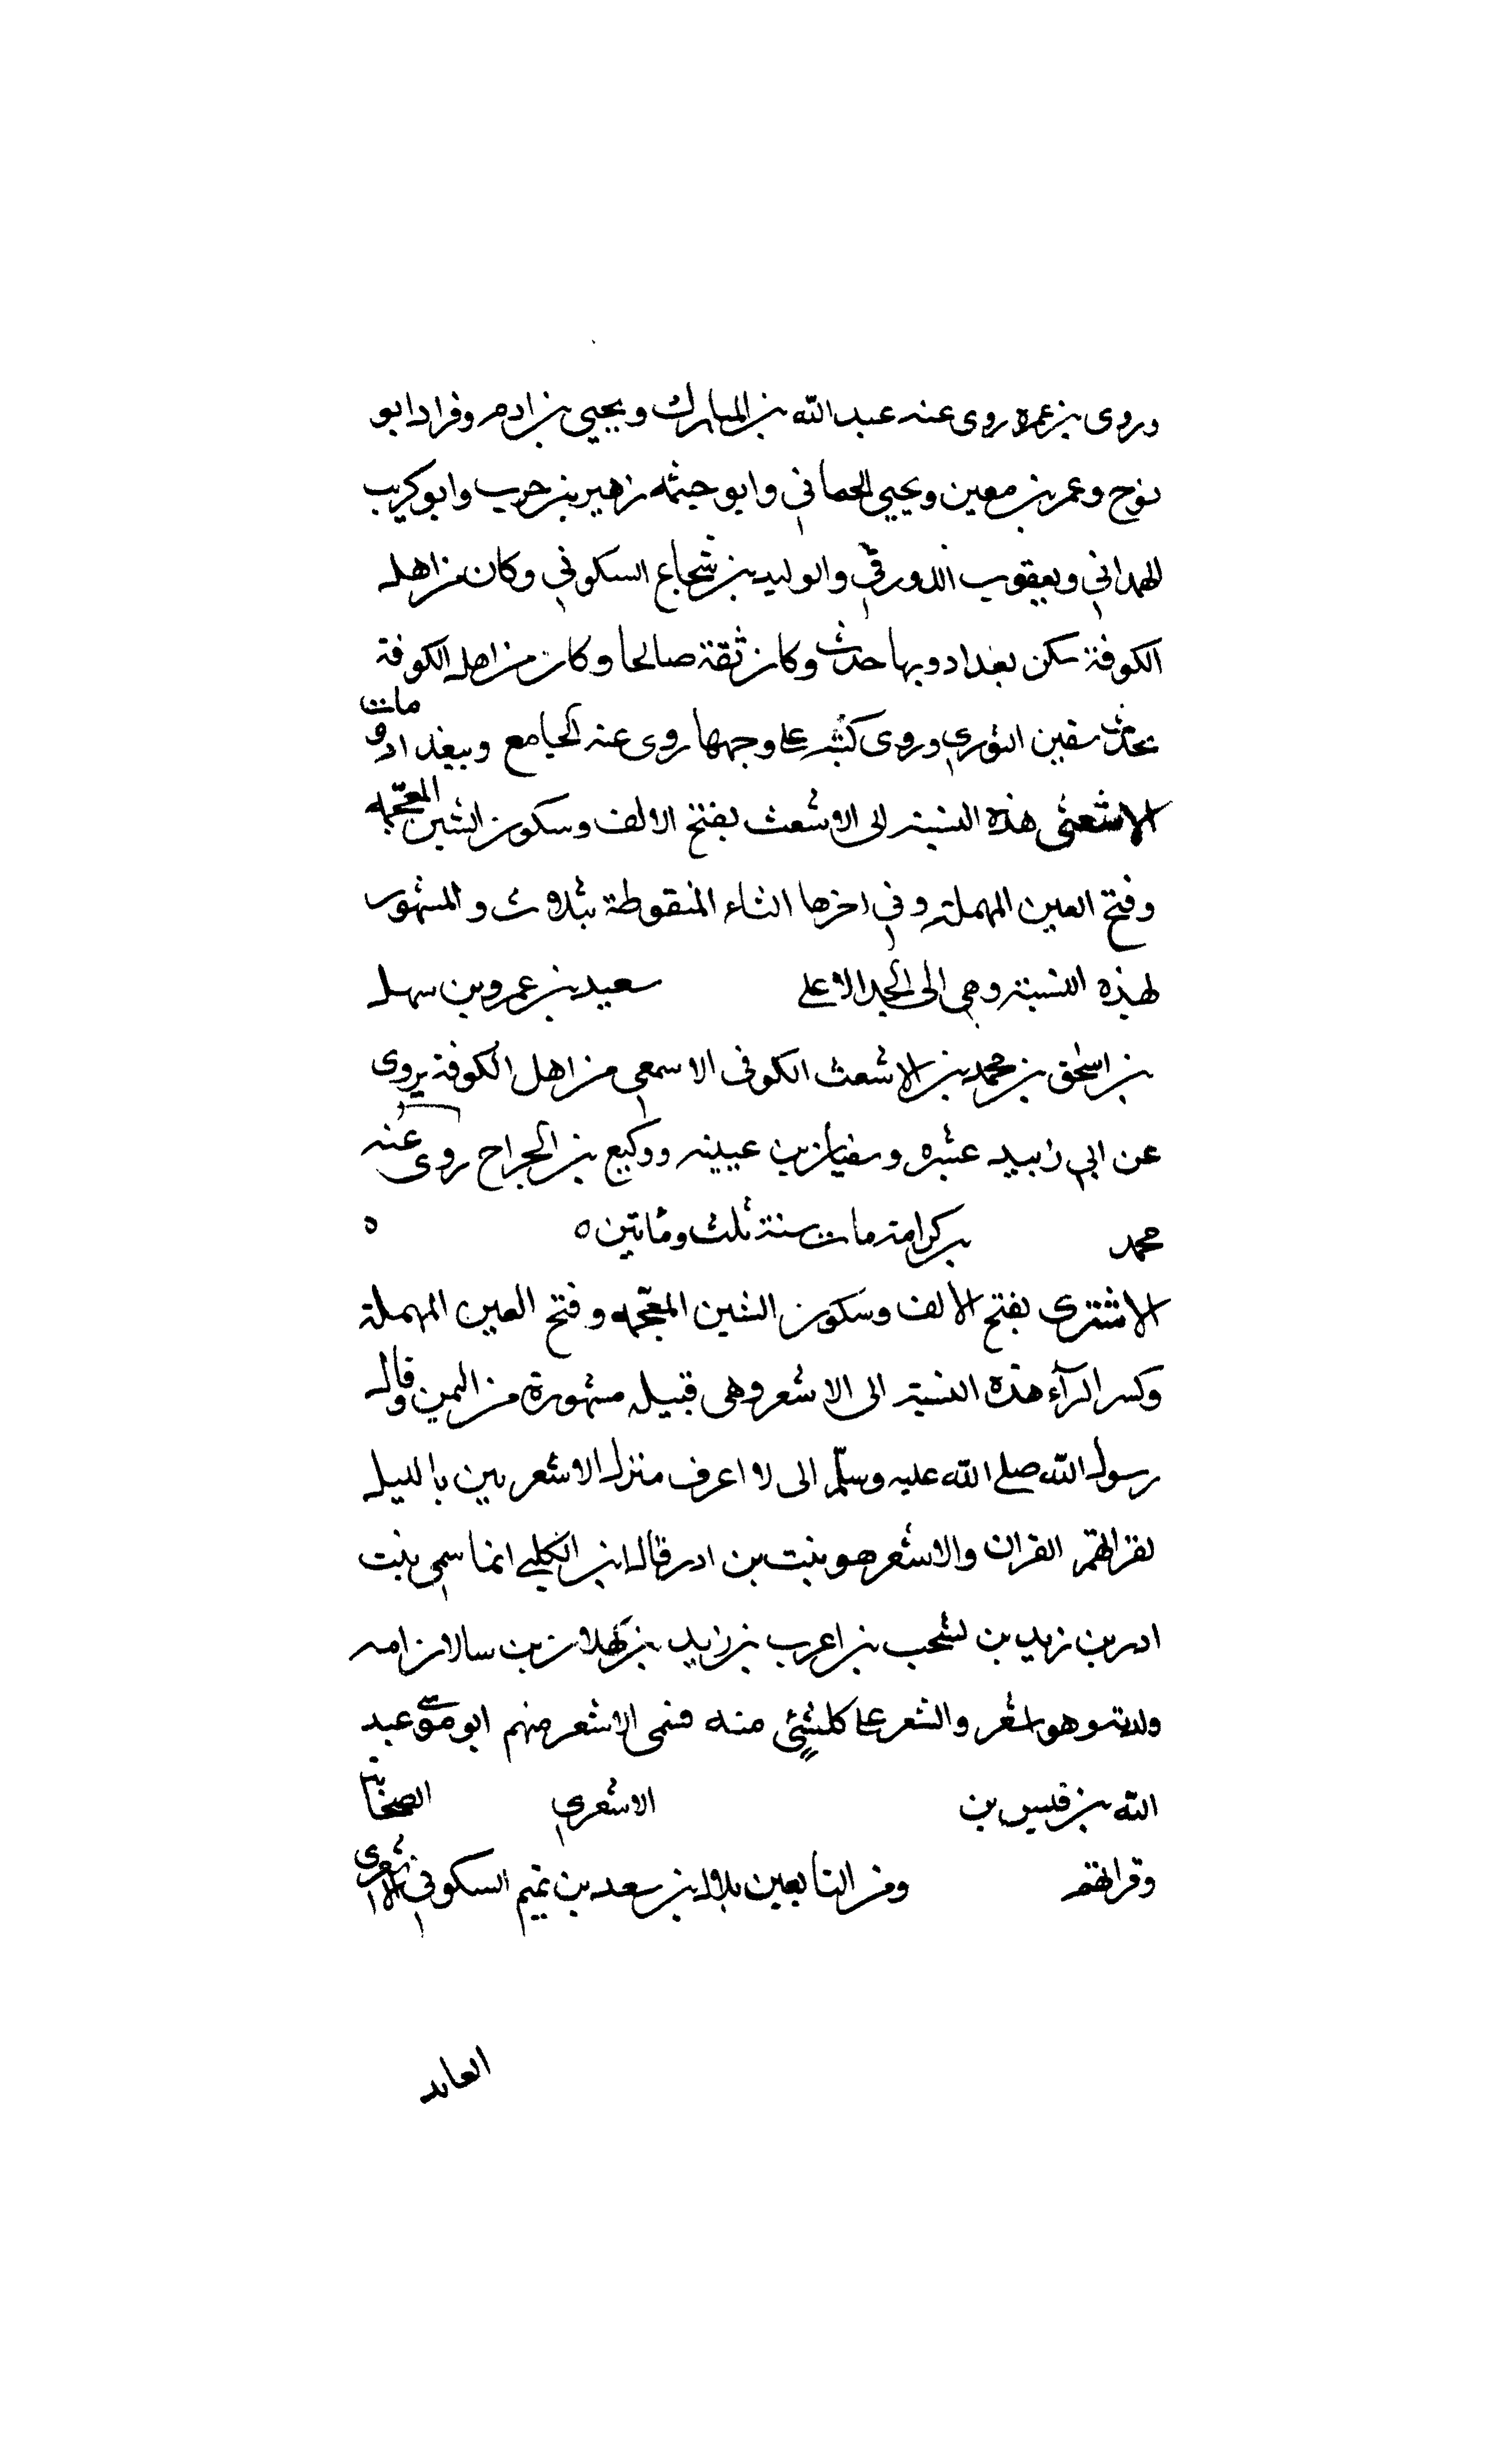 وروى بن عمره روى عنه عبد الله بن المبارك ويحيى بن ادم وقراد ابو
نوح وعمر بن معين ويحيى الحماني وابو خيثمه زهير بن حرب وابو كريب
الهمداني ويعقوب الدورقي والوليد بن شجاع السكوني وكان من اهل
الكوفة سكن بغداد وبها حدث وكان ثقة صالحا وكان من اهل الكوفة
يحدث سفين الثوري وروى كتبه على وجهها روى عنه الجامع وببغداد ومات
الاشعثى هذه النسبة الى الاشعث بفتح الالف وسكون الشين المعجمه
وفتح العين المهملة وفي اخرها الثاء المنقوطة بثلاث والمشهور
بهذه النسبة وهي الى الجد الاعلى سعيد بن عمرو بن سهل
بن اسحق بن محمد بن الاشعث الكوفى الاسمعي من اهل الكوفة يروى
عن ابي زبيد عبثر وسفيان بن عيينه ووكيع بن الجراح روى عنه
محمد بن كرامة مات سنة ثلث ومأتين ه ه
الاشترى بفتح الالف وسكون الشين المعجمه وفتح العين المهملة
وكسر الرآء هذه النسبة الى الاشعر وهى قبيله مشهورة من اليمن وقال
رسول الله صلى الله عليه وسلم الى لا اعرف منزل الاشعريين بالليل
لقراتهم القران والاشعر هو بنت بن ادر قال ابن الكلبي انما سمي بنت
ادر بن زيد بن يشحب بن اعرب بن زيد بن كهلان بن سالان امه
ولدته وهو اشعر والشعر على كل شئ منه فسمى الاشعر منهم ابو موسى عبد
الله بن قيس بن الاشعري الصحابة
وقراتهم ومن التابعين بلال بن سعد بن تميم السكوني الاشعرى
العابد